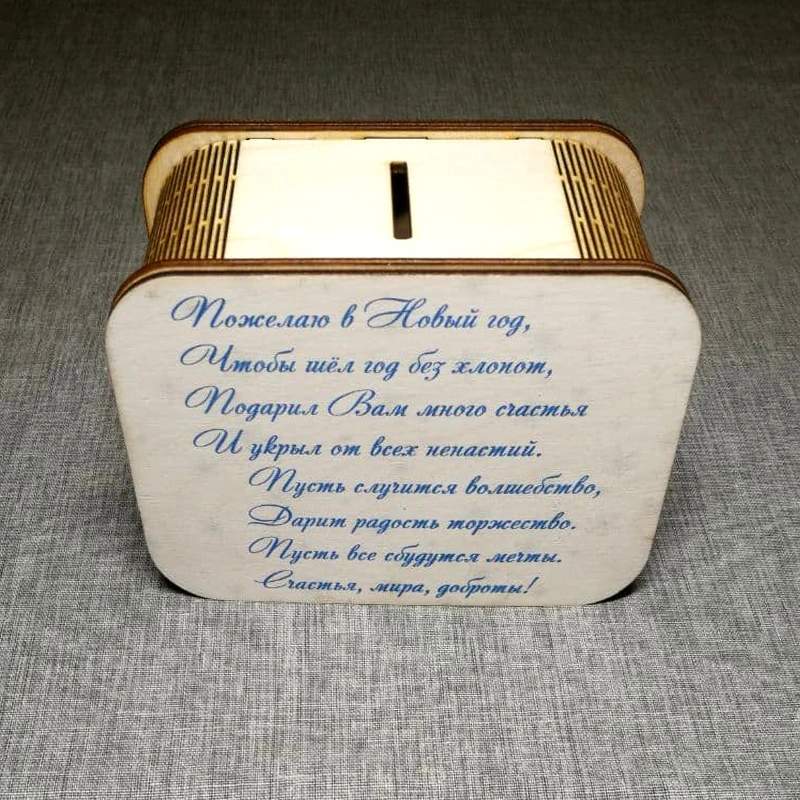 Пожелаю в Новый год,
Чтобы шёл год без хлопот,
Подарил Вам много счастья
И укрыл от всех ненастий.
Пусть случится волшебство,
Дарит радость торжество.
Пусть все сбудутся мечты.
Счастья, мира, доброты!